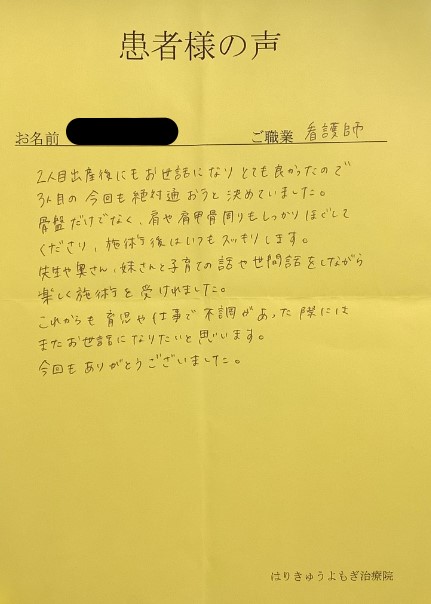 患者様の声
お名前 ご職業 看護師
2人目出産後にもお世話になりとても良かったので
3人目の今回も絶対通おうと決めていました。
骨盤だけでなく、肩や肩甲骨周りもしっかりほぐして
くださり、施術後はいつもスッキリします。
先生や奥さん、妹さんと子育ての話や世間話をしながら
楽しく施術を受けれました。
これからも育児や仕事で不調があった際には
またお世話になりたいと思います。
今回もありがとうございました。
はりきゅうよもぎ治療院